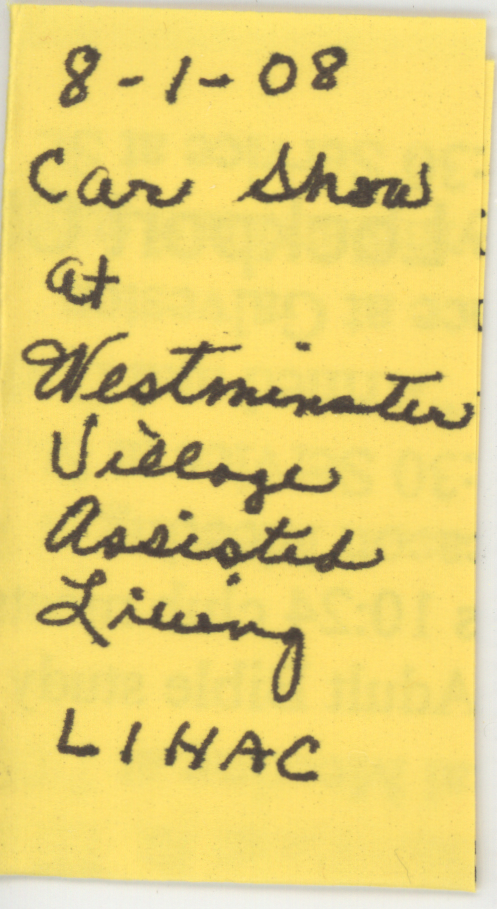 8-1-08
Car Show
at
Westminster
Village
Assisted
Living
LIHAC